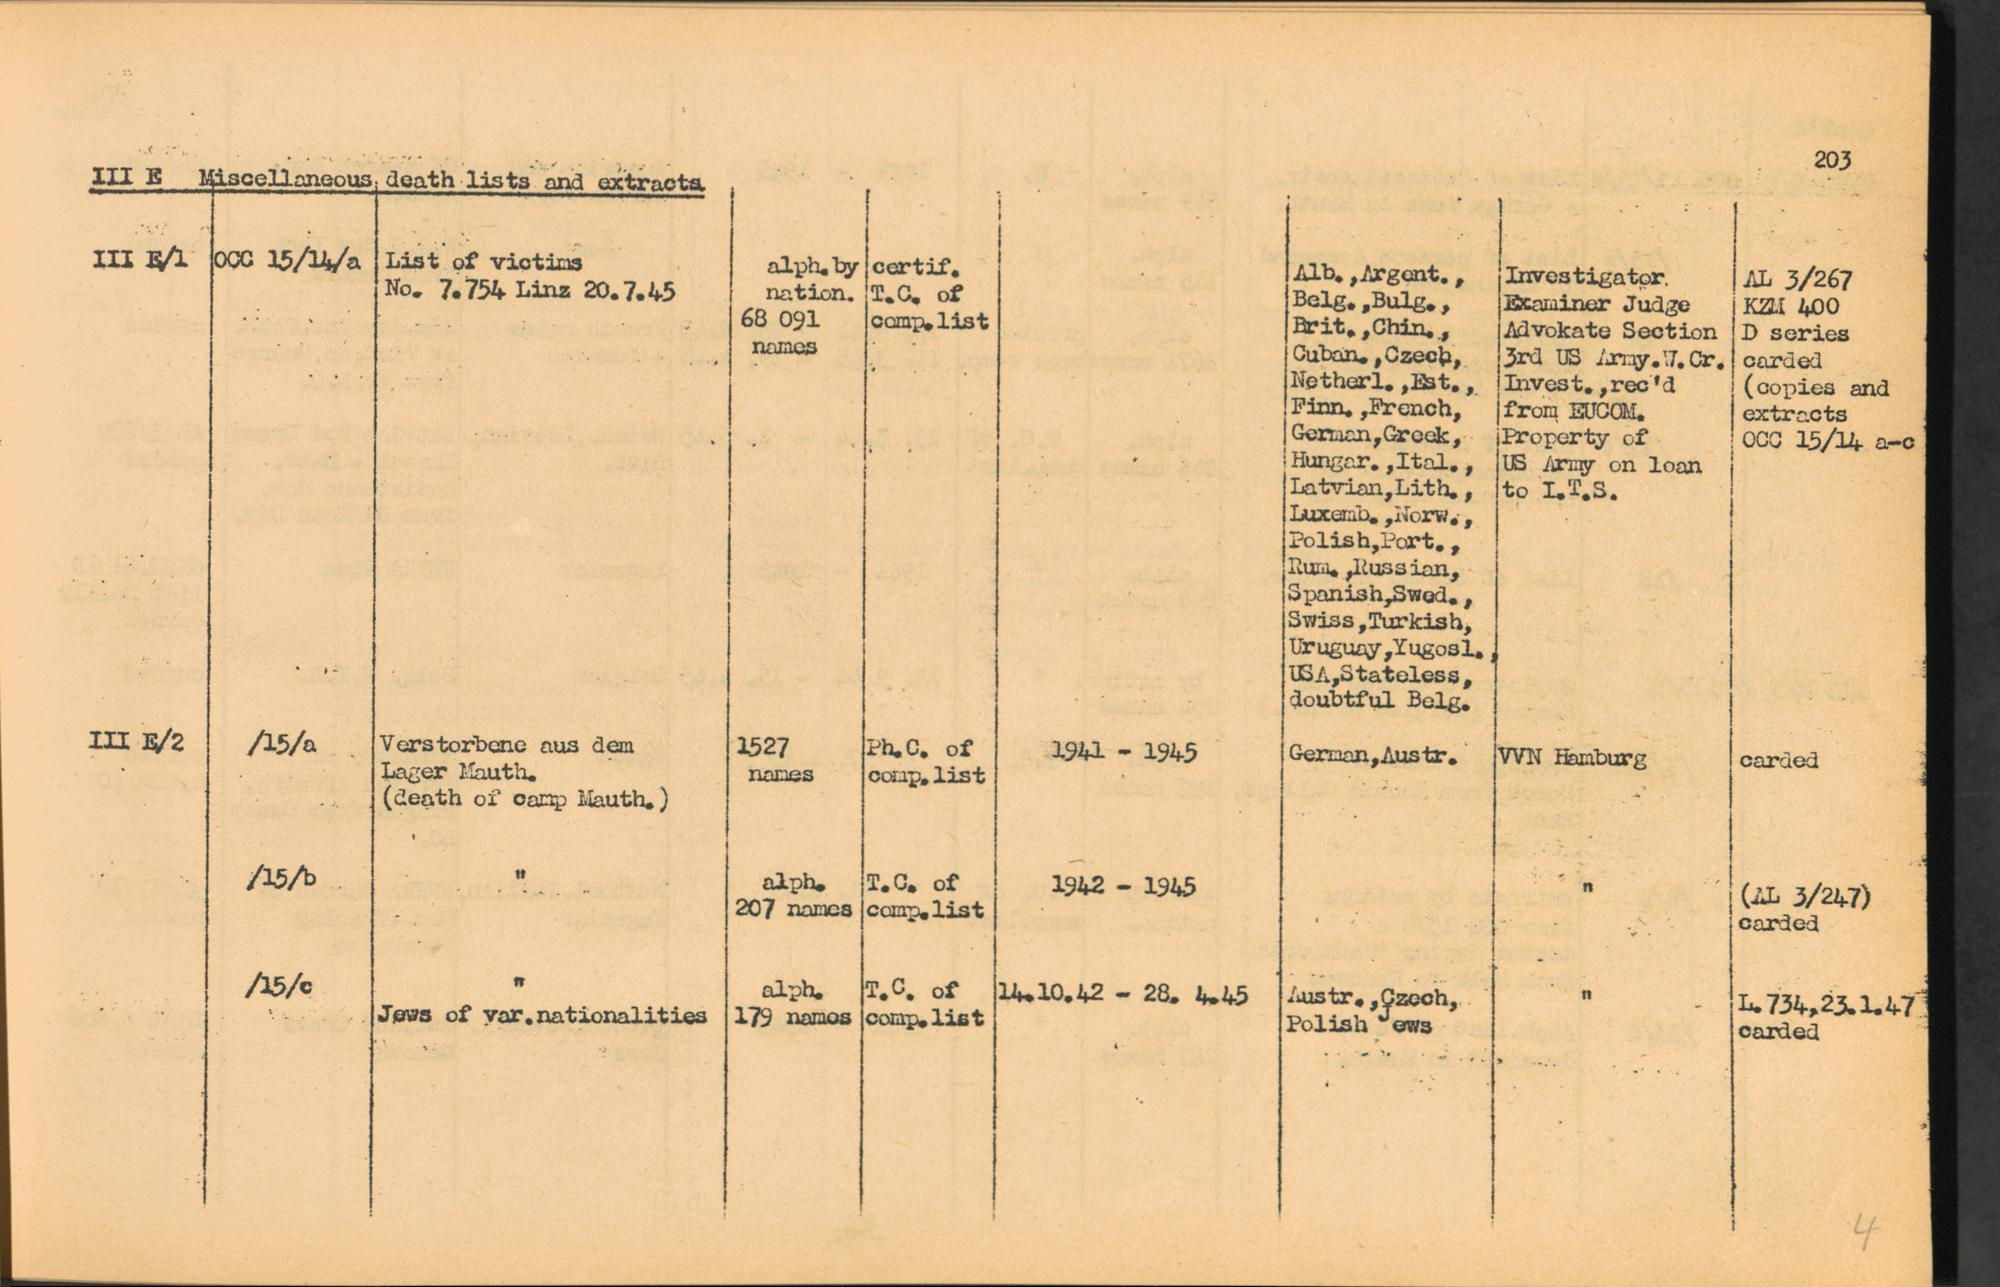 203
III E Miscellaneous death lists and extracts
III E/1 OCC 15/14/a List of victims alph.by certif. Alb.,Argent., Investigator. AL 3/267
No. 7.754 Linz 20.7.45 nation. T.C. of Belg.,Bulg., Examiner Judge KZM 400
68 091 comp.list Brit.,Chin., Advokate Section D series
names Cuban.,Czech, 3rd US Army.W.Cr. carded
Netherl.,Est., Invest.,rec'd (copies and
Finn.,French, from EUCOM. extracts
German,Greek, Property of OCC 15/14 a-c
Hungar.,Ital., US Army on loan
Latvian,Lith., to I.T.S.
Luxemb.,Norw.,
Polish,Port.,
Rum.,Russian,
Spanish,Swed.,
Swiss,Turkish,
Uruguay,Yugosl.,
USA,Stateless,
doubtful Belg.
III E/2 /15/a Verstorbene aus dem 1527 Ph.C. of 1941 - 1945 German,Austr. VVN Hamburg carded
Lager Mauth. names comp.list
(death of camp Mauth.)
/15/b " alph. T.C. of 1942 - 1945 " (AL 3/247)
207 names comp.list carded
/15/c " alph. T.C. of 14.10.42 - 28. 4.45 Austr.,Czech, " L.734,23.1.47
Jews of var.nationalities 179 names comp.list Polish Jews carded
4